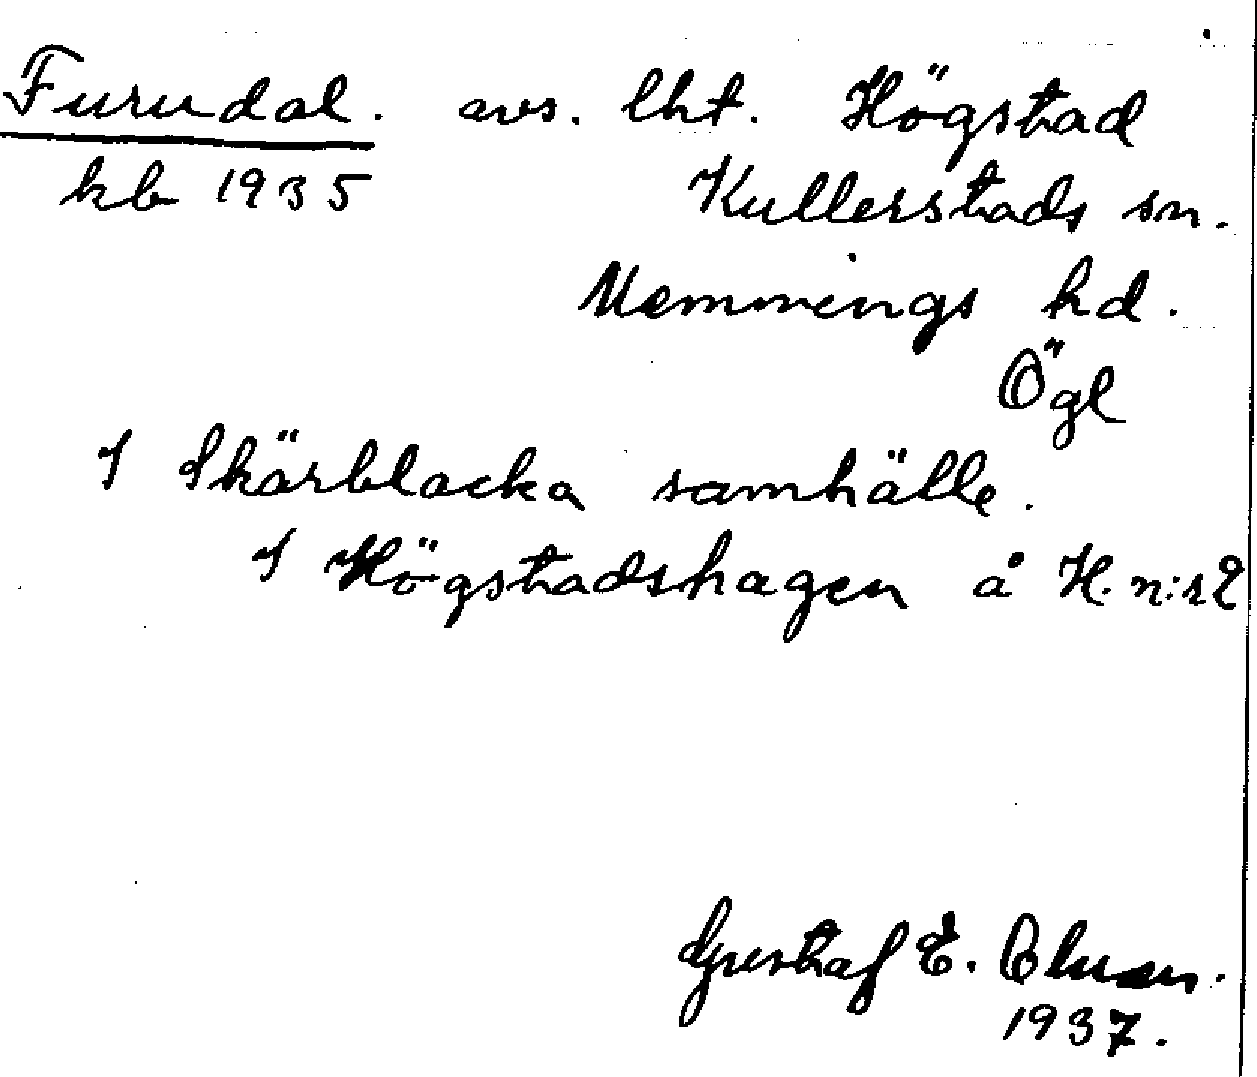 Furudal. avs. lht. Högstad
kb 1935 Kullerstads sn.
Memmings hd.
Ögl
I Skärblacka samhälle.
I Högstadshagen å H. n:r 2
Gustaf E.
1937.